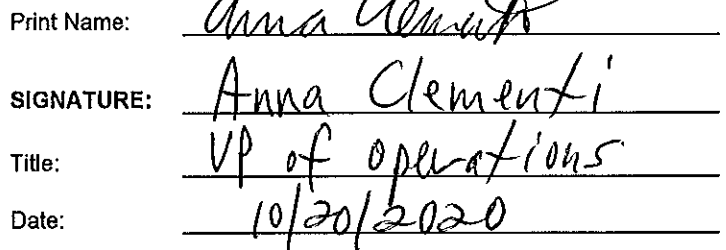 Print Name: Anna Clementi
SIGNATURE: Anna Clementi
Title: VP of operations
Date: 10/20/2020